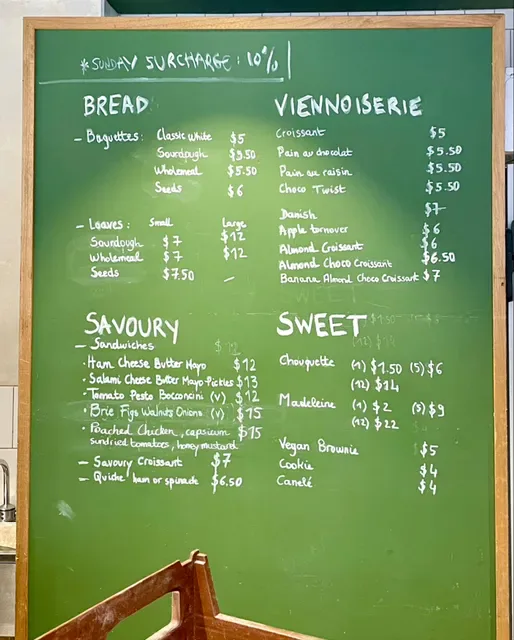 *SUNDAY SURCHARGE: 10%
BREAD
- Baguettes: Classic White $5
Sourdough $5.50
Wholemeal $5.50
Seeds $6
- Loaves: Small Large
Sourdough $7 $12
Wholemeal $7 $12
Seeds $7.50 -
VIENNOISERIE
Croissant $5
Pain au chocolat $5.50
Pain au raisin $5.50
Choco Twist $5.50
Danish $7
Apple turnover $6
Almond Croissant $6
Almond Choco Croissant $6.50
Banana Almond Choco Croissant $7
SAVOURY
- Sandwiches
• Ham Cheese Butter Mayo $12
• Salami Cheese Butter Mayo Pickles $13
• Tomato Pesto Bocconcini (v) $12
• Brie Figs Walnuts Onions (v) $15
• Poached Chicken, capsicum $15
sundried tomatoes, honey mustard
- Savoury Croissant $7
- Quiche ham or spinach $6.50
SWEET
Chouquette (1) $1.50 (5) $6
(12) $14
Madeleine (1) $2 (5) $9
(12) $22
Vegan Brownie $5
Cookie $4
Canelé $4